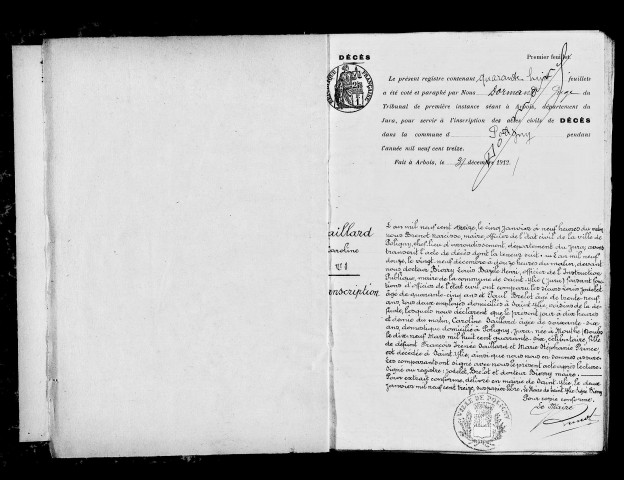 DÉCÈS
Premier feuillet.
RÉPUBLIQUE FRANÇAISE
Le présent registre contenant quarante huit feuillets
a été coté et paraphé par Nous Dormand Juge du
Tribunal de première instance séant à Arbois, département du
Jura, pour servir à l'inscription des actes civils de DÉCÈS
dans la commune d Poligny pendant
l'année mil neuf cent treize.
Fait à Arbois, le 31 décembre 1912.
aillard
aroline
N° 1
anscription
L'an mil neuf cent treize, le cinq janvier à neuf heures du matin,
nous Brenot Narcisse, maire, officier de l'état civil de la ville de
Poligny, chef-lieu d'arrondissement, département du Jura, avons
transcrit l'acte de décès dont la teneur suit : L'an mil neuf cent
douze, le vingt neuf décembre à douze heures du matin, devant
nous docteur Bierry Louis Henri, officier de l'Instruction
Publique, maire de la commune de Saint-Ylie (Jura) faisant fonc
tions d'officier de l'état civil, ont comparu les sieurs
âgé de quarante-cinq ans et Paul Brelot âgé de trente neuf
ans, tous deux employés domiciliés à Saint-Ylie, voisins de la dé
funte, lesquels nous ont déclaré que le présent jour à dix heures
et demie du matin, Caroline Gaillard âgée de soixante-six
ans, domestique domiciliée à Poligny, Jura, née à Mouthe (Doubs)
le dix neuf Mars mil huit cent quarante-six, célibataire, fille
de défunt François Irénée Gaillard et Marie Stéphanie Prince,
est décédée à Saint-Ylie, ainsi que nous nous en sommes assuré.
Les comparants ont signé avec nous le présent acte après lecture.
Signé au registre : Jodelet, Brelot et docteur Bierry maire.
Pour extrait conforme, délivré en mairie de Saint-Ylie, le deux
janvier mil neuf cent treize, sur papier libre, le Maire de Saint-Ylie signé Bierry
Pour copie conforme,
Le Maire
VILLE DE POLIGNY
Brenot